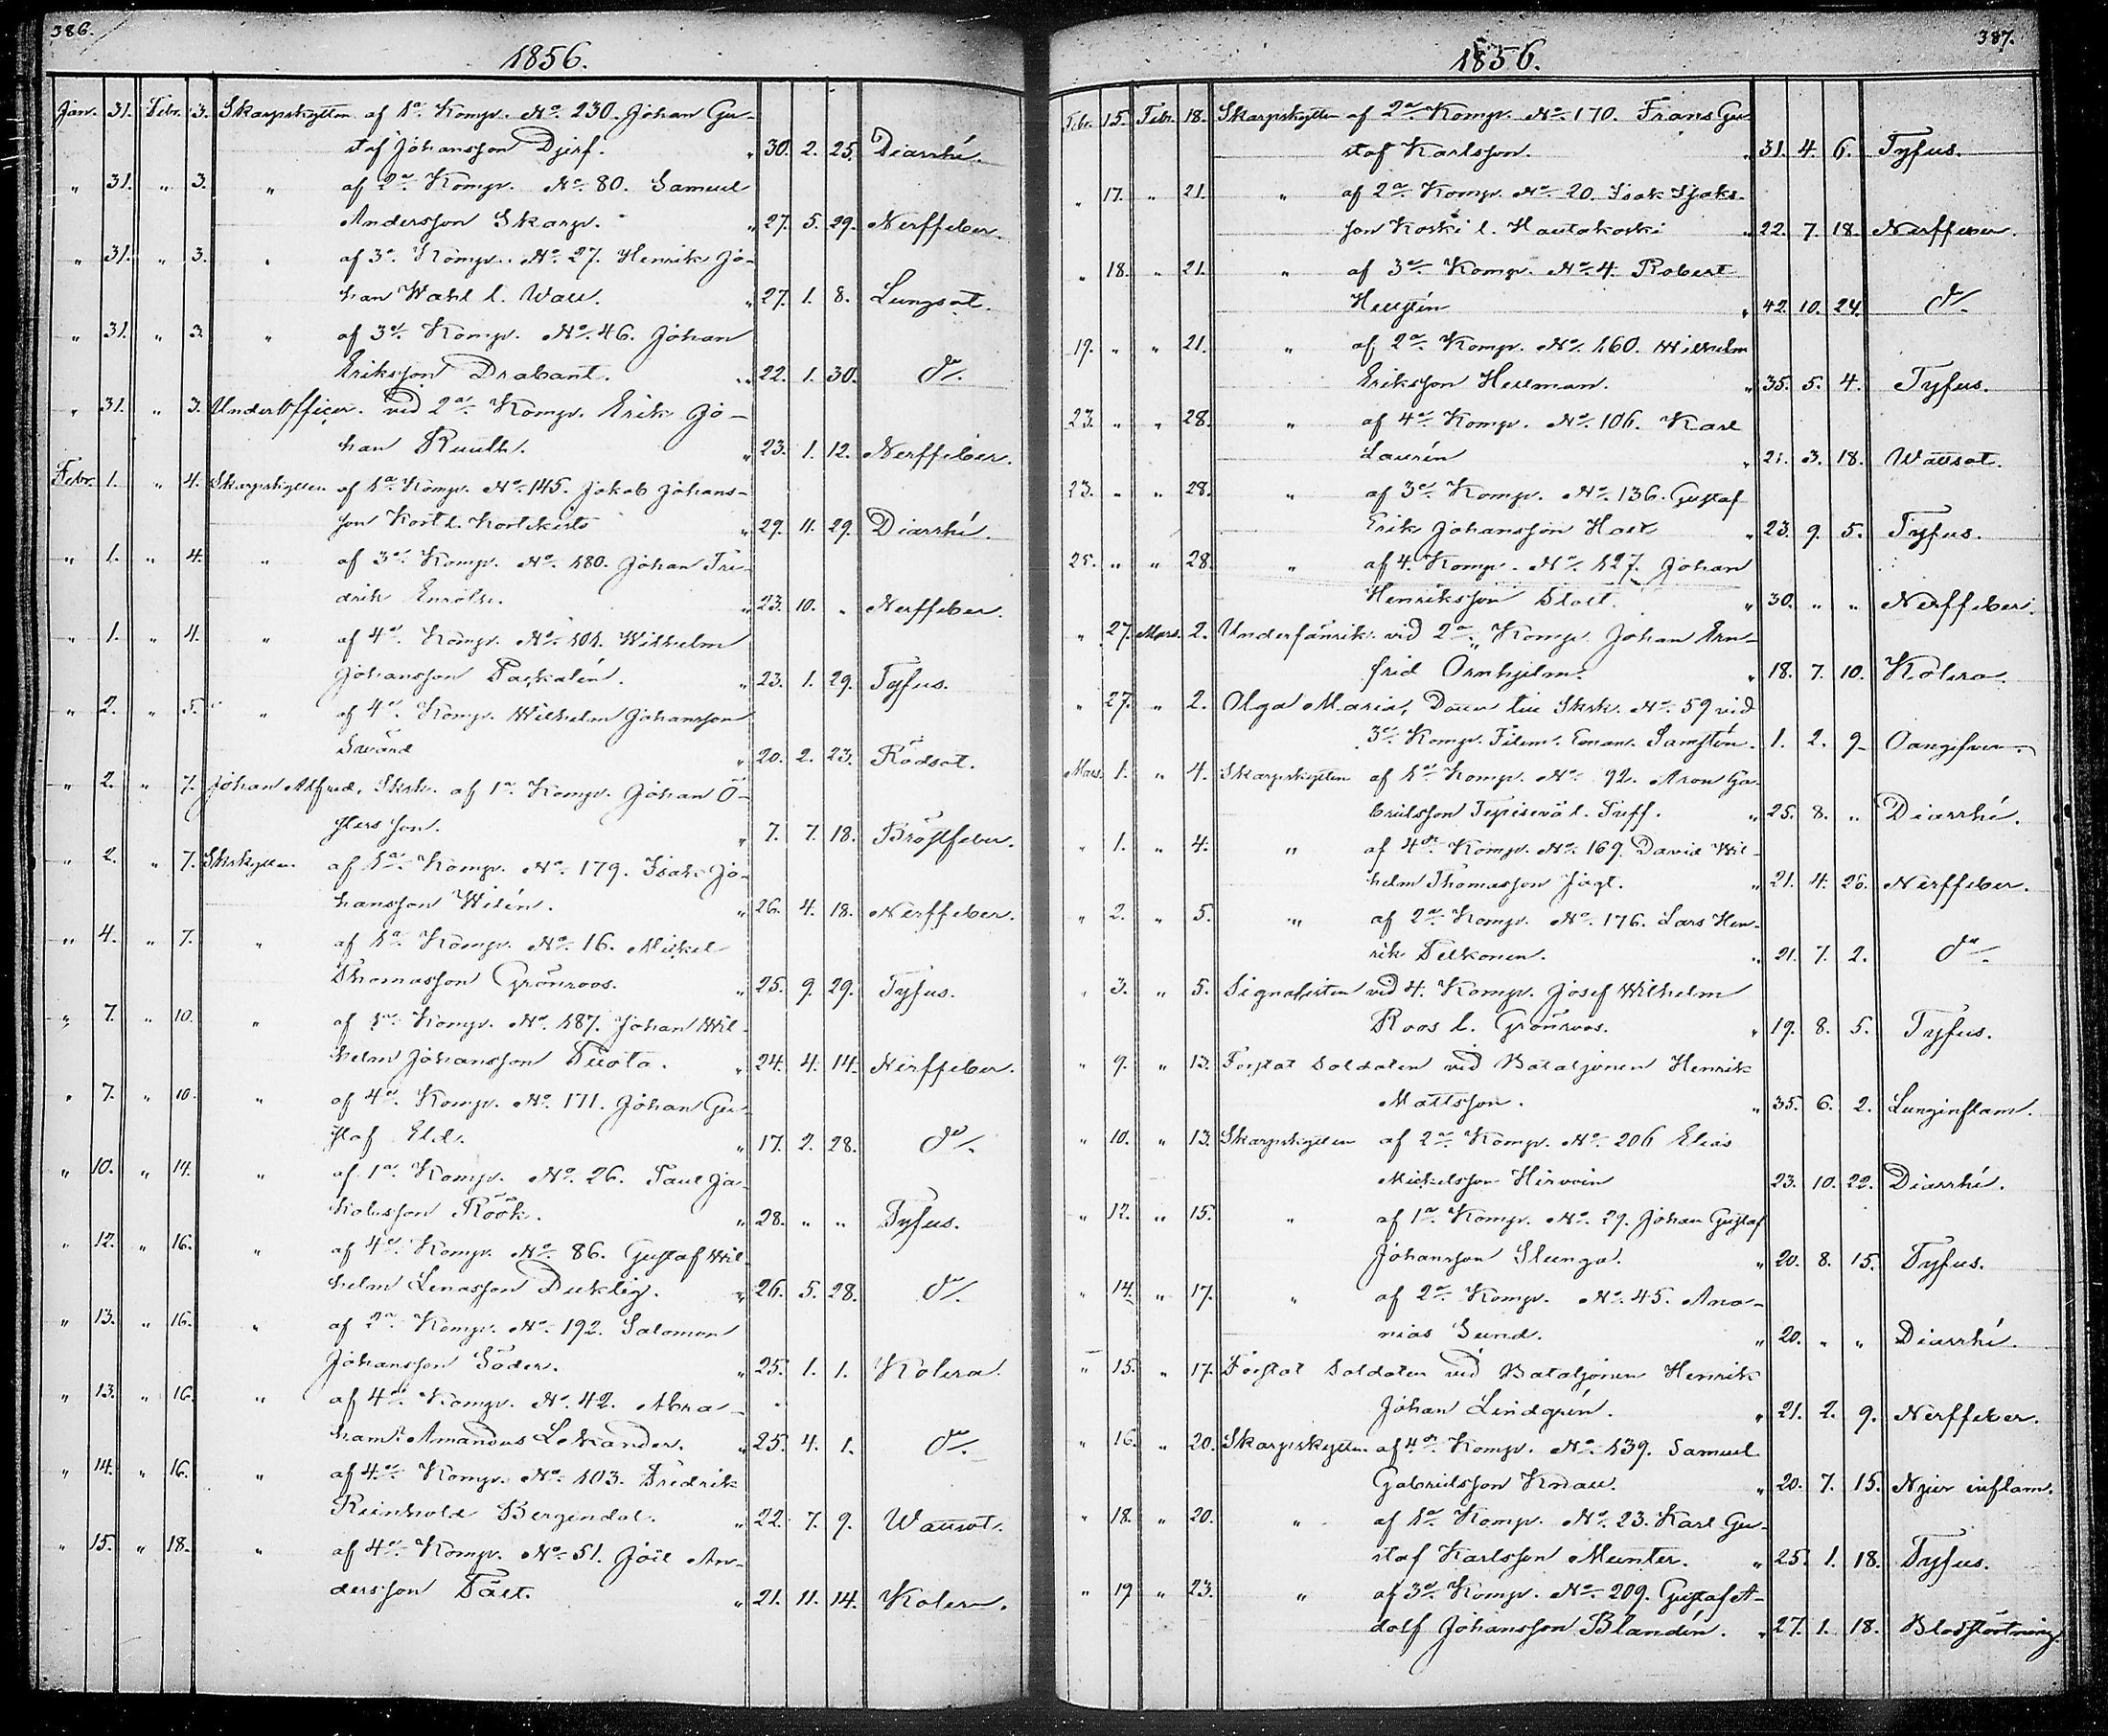 386.
1856.
Jan. 31. Febr. 3. Skarpskytten af 1a Komp. No 230. Johan Gu-
staf Johansson Djerf. " 30. 2. 25. Diarrhé.
" 31. " 3. " af 2a Komp. No 80. Samuel
Andersson Skarp. " 27. 5. 29. Nerffeber.
" 31. " 3. " af 3e Komp. No 27. Henrik Jo-
han Wahl l. Wall. " 27. 1. 8. Lungsot.
" 31. " 3. " af 3e Komp. No 46. Johan
Eriksson Drabant. " 22. 1. 30. do
" 31. " 3. Underofficer. vid 2a Komp. Erik Jo-
han Ruuth. " 23. 1. 12. Nerffeber.
Febr. 1. " 4. Skarpskytten af 1a Komp. No 145. Jakob Johans-
son Kort l. " 29. 11. 29. Diarrhé.
" 1. " 4. " af 3e Komp. No 180. Johan Fre-
drik Enroth. " 23. 10. " Nerffeber.
" 1. " 4. " af 4e Komp. No 101. Wilhelm
Johansson Paskalin. " 23. 1. 29. Tyfus.
" 2. " 5. " af 4e Komp. Wilhelm Johansson
Swärd " 20. 2. 23. Rödsot.
" 2. " 7. Johan Alfred, Skrsk. af 1a Komp. Johan Ö-
sters son. " 7. 7. 18. Bröstfeber.
" 2. " 7. Skrskytten af 1a Komp. No 179. Isak Jo-
hansson Wilén. " 26. 4. 18. Nerffeber.
" 4. " 7. " af 1a Komp. No 16. Mickel
Thomasson Grönroos. " 25. 9. 29. Tyfus.
" 7. " 10. " af 1a Komp. No 187. Johan Wil-
helm Johansson Tuota. " 24. 4. 14. Nerffeber.
" 7. " 10. " af 4e Komp. No 171. Johan Gu-
staf Eld. " 17. 2. 28. do
" 10. " 14. " af 1a Komp. No 26. Paul Ja-
kobsson Röök. " 28. " " Tyfus.
" 12. " 16. " af 4e Komp. No 86. Gustaf Wil-
helm Lenasson Duktig. " 26. 5. 28. do
" 13. " 16. " af 2a Komp. No 192. Salomon
Johansson Söder. " 25. 1. 1. Kolera.
" 13. " 16. " af 4e Komp. No 42. Abra-
ham Amandus Lekander. " 25. 4. 1. do
" 14. " 16. " af 4e Komp. No 103. Fredrik
Reinhold Bergendal. " 22. 7. 9. Wattsot.
" 15. " 18. " af 4e Komp. No 51. Joël An-
dersson Tält. " 21. 11. 14. Kolera.
387.
1856.
Febr. 15. Febr. 18. Skarpskytten af 2a Komp. No 170. Frans Gu-
staf Karlsson. " 31. 4. 6. Tyfus.
" 17. " 21. " af 2a Komp. No 20. Isak Isaks-
son Koski l. Hautakoski " 22. 7. 18. Nerffeber.
" 18. " 21. " af 3e Komp. No 4. Robert
" 42. 10. 24. do
19. " " 21. " af 2a Komp. No 160. Wilhelm
Eriksson Hellman. " 35. 5. 4. Tyfus.
23. " " 28. " af 4e Komp. No 106. Karl
Laurén " 21. 3. 18. Wattsot.
23. " " 28. " af 3e Komp. No 136. Gustaf
Erik Johansson Hast " 23. 9. 5. Tyfus.
25. " " 28. " af 4. Komp. No 127. Johan
Henriksson Stolt. " 30. " " Nerffeber.
" 27. Mars. 2. Underfänrik vid 2a Komp. Johan Ern-
frid Örnhjelm. " 18. 7. 10. Kolera.
" 27. " 2. Olga Maria, Dotter till Skrsk. No 59 vid
3e Komp. Filem. Eman. Samstén. 1. 2. 9. Oangifven.
Mars. 1. " 4. Skarpskytten af 1a Komp. No 92. Aron Ga-
brielsson l. Tuff. " 25. 8. " Diarrhé.
" 1. " 4. " af 4de Komp. No 169. David Wil-
helm Thomasson Jägt. " 21. 4. 26. Nerffeber.
" 2. " 5. " af 2a Komp. No 176. Lars Hen-
rik Pelkonen. " 21. 7. 2. do
" 3. " 5. Signalisten vid 4. Komp. Josef Wilhelm
Roos l. Grönroos. " 19. 8. 5. Tyfus.
" 9. " 13. Forstat Soldaten vid Bataljonen Henrik
Mattsson. " 35. 6. 2. Lunginflam.
" 10. " 13. Skarpskytten af 2a Komp. No 206 Elias
Mickelsson Hirvoin 23. 10. 22. Diarrhé.
" 12. " 15. " af 1a Komp. No 29. Johan Gustaf
Johansson Slunga. " 20. 8. 15. Tyfus.
" 14. " 17. " af 2a Komp. No 45. Ana-
nias Sund. " 20. " " Diarrhé.
" 15. " 17. Forstat Soldaten vid Bataljonen Henrik
Johan Lindgrén. " 21. 2. 9. Nerffeber.
" 16. " 20. Skarpskytten af 4de Komp. No 139. Samuel
Gabrielsson Knall. " 20. 7. 15. Njur inflam.
" 18. " 20. " af 1a Komp. No 23. Karl Gu-
staf Karlsson Munter. " 25. 1. 18. Tyfus.
" 19 " 23. " af 3e Komp. No 209. Gustaf A-
dolf Johansson Blandén. " 27. 1. 18. Blodstörtning.